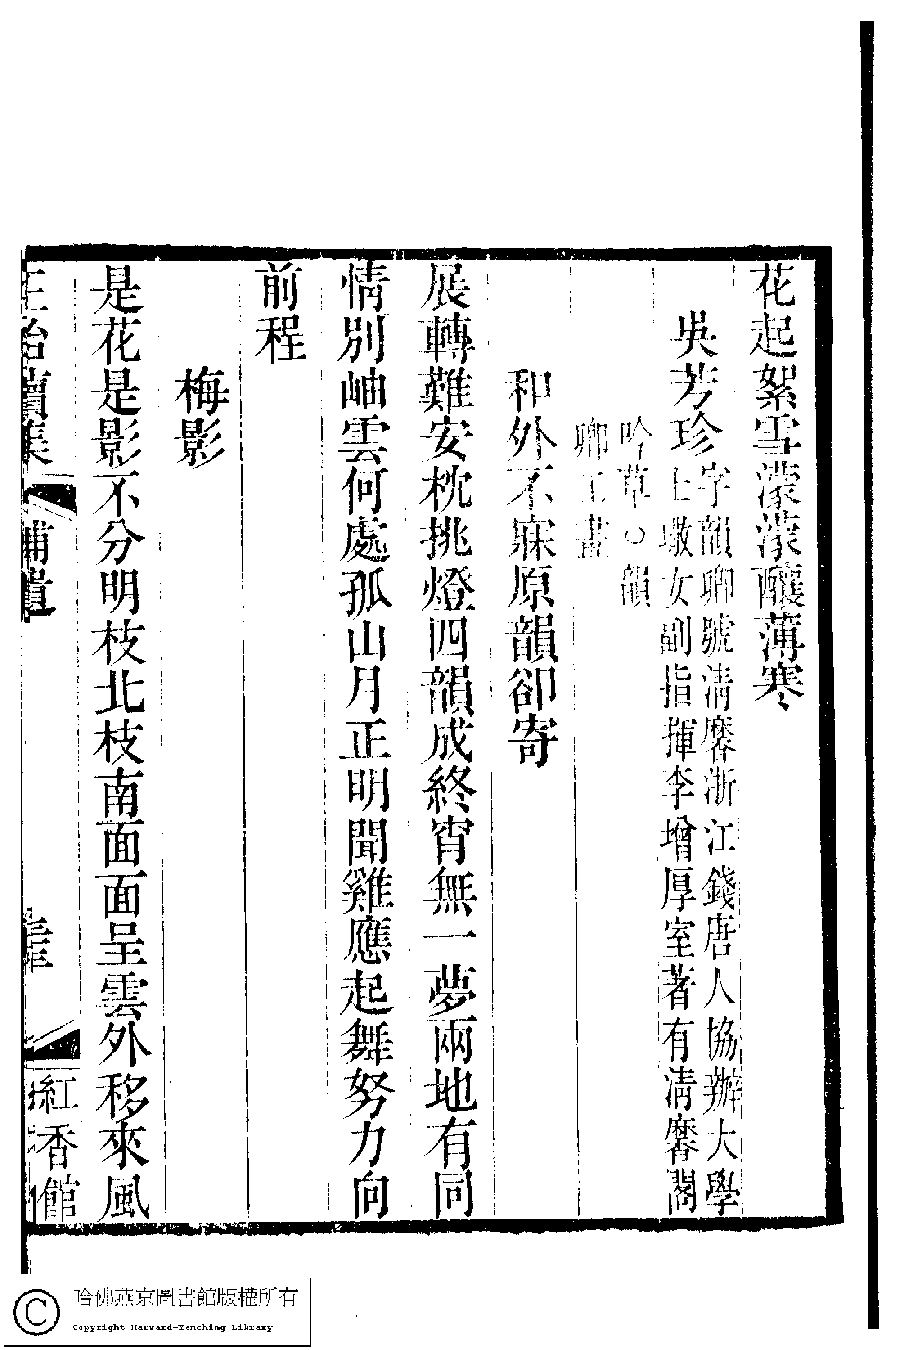 花起絮雪濛濛釀薄寒
吳芳珍
字韻卿號清麐浙江錢唐人協辦大學
士墩女副指揮李增厚室著有清麐閣
吟草○韻
卿工畫
和外不寐原韻卻寄
展轉難安枕挑燈四韻成終宵無一夢兩地有同
情別岫雲何處孤山月正明聞雞應起舞努力向
前程
梅影
是花是影不分明枝北枝南面面呈雲外移來風
正始續集
補遺
紅香館
哈佛燕京圖書館版權所有
Copyright Harvard-Yenching Library